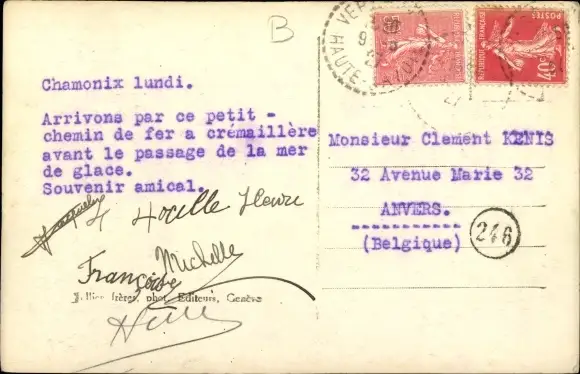 B
HAUTE-SAVOIE
REPUBLIQUE FRANÇAISE
POSTES
40c
Chamonix lundi.
Arrivons par ce petit -
chemin de fer a crémaillère
avant le passage de la mer
de glace.
Souvenir amical.
Henri
Michelle
Françoise
Jullien frères, phot. Editeurs, Genève
Monsieur Clement KENIS
32 Avenue Marie 32
ANVERS.
(Belgique)
246